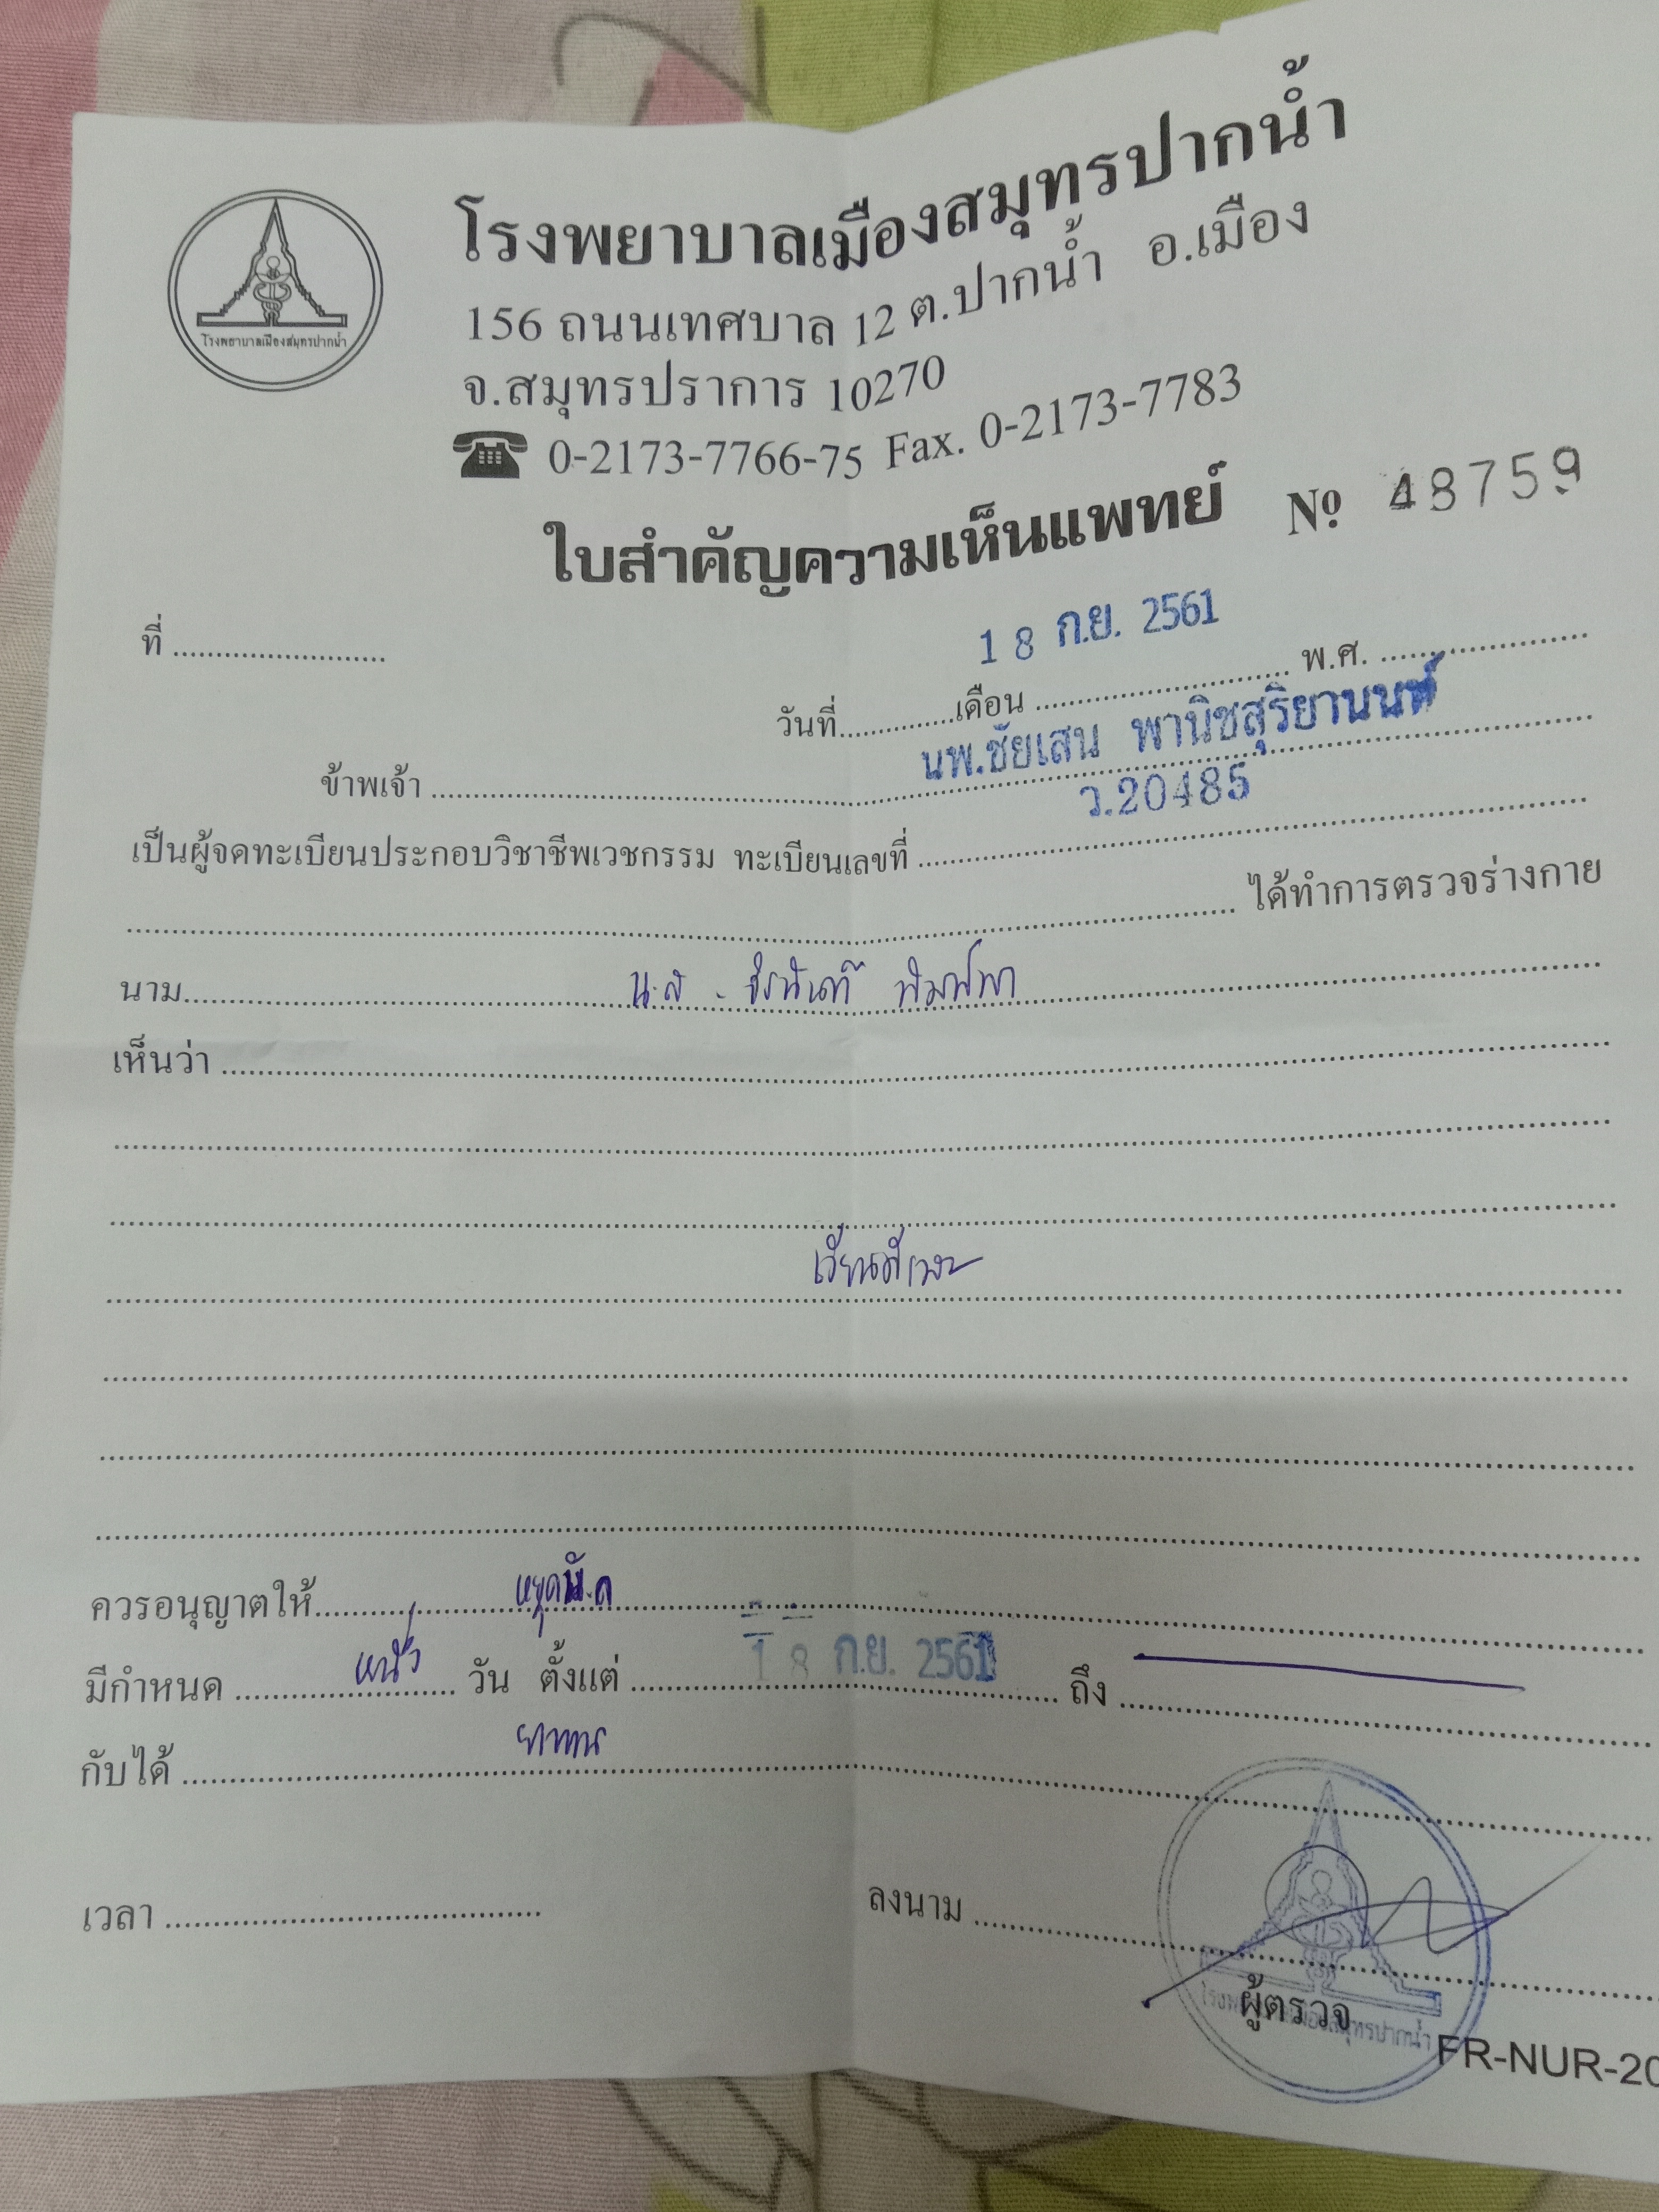 โรงพยาบาลเมืองสมุทรปากน้ำ
โรงพยาบาลเมืองสมุทรปากน้ำ
156 ถนนเทศบาล 12 ต.ปากน้ำ อ.เมือง
จ.สมุทรปราการ 10270
☎ 0-2173-7766-75 Fax. 0-2173-7783
ใบสำคัญความเห็นแพทย์ Nº 48759
ที่ ........................
18 ก.ย. 2561
วันที่.............เดือน ............................. พ.ศ. ........................
ข้าพเจ้า นพ.ชัยเสน พานิชสุริยานนท์
เป็นผู้จดทะเบียนประกอบวิชาชีพเวชกรรม ทะเบียนเลขที่ ว.20485
ได้ทำการตรวจร่างกาย
นาม น.ส.
เห็นว่า
เวียนศีรษะ
ควรอนุญาตให้ หยุดพัก
มีกำหนด หนึ่ง วัน ตั้งแต่ 18 ก.ย. 2561 ถึง
กับได้ ยาทาน
เวลา
ลงนาม
ผู้ตรวจ
โรงพยาบาลเมืองสมุทรปากน้ำ
FR-NUR-20